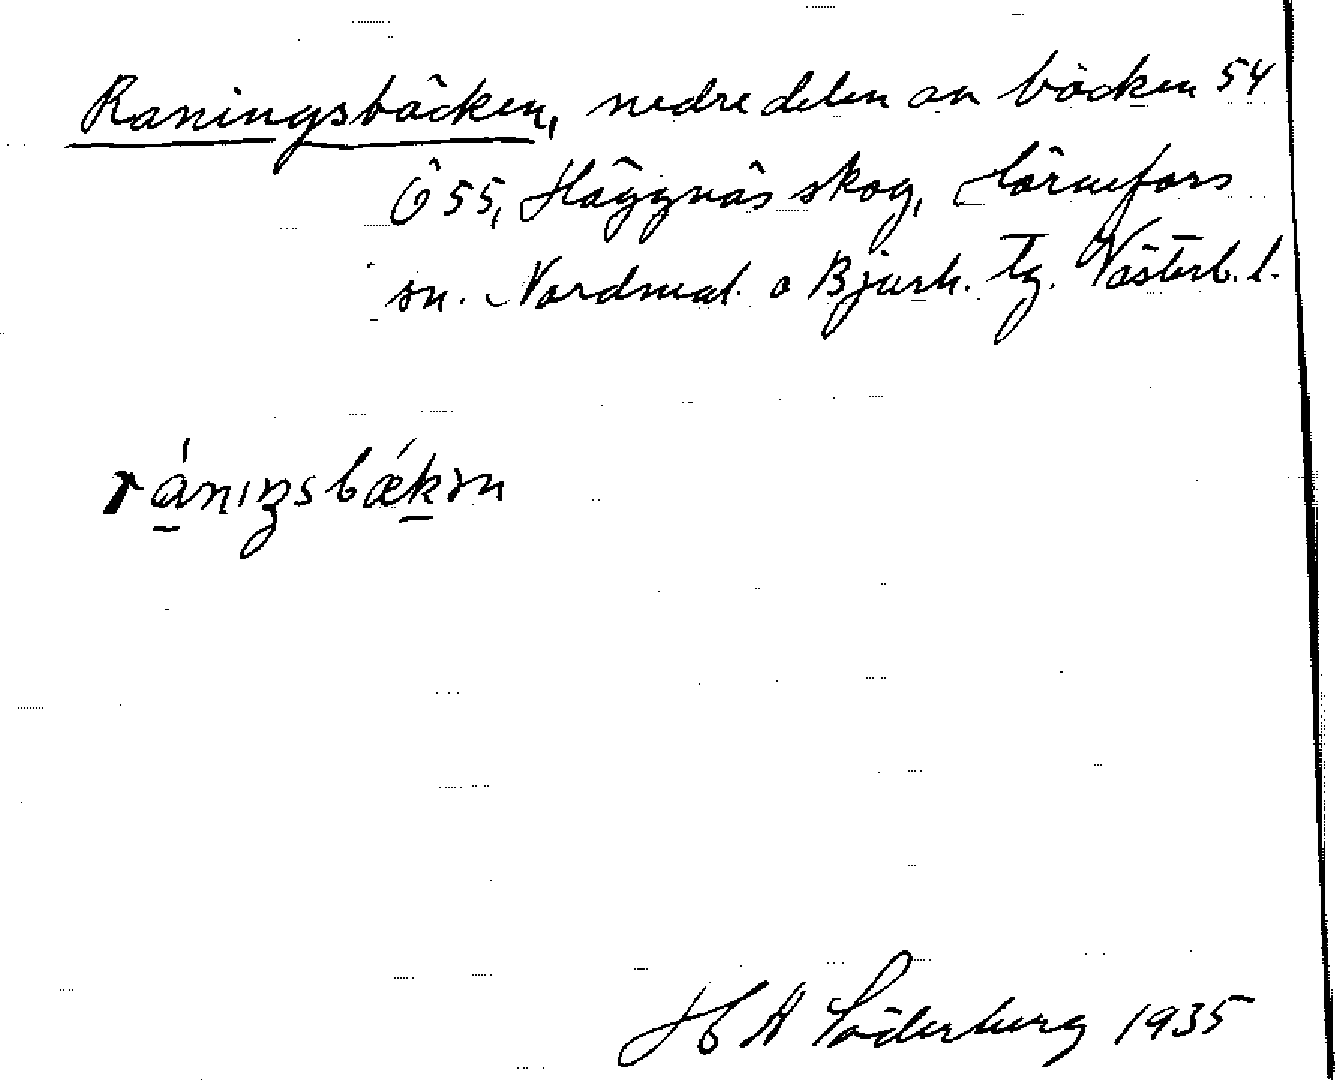 Raningsbäcken, nedre delen av bäcken 54
Ö 55, Häggnäs skog, Hörnefors
sn. Nordmal. o Bjurh. tg. Västerb. l.
ránıŋsbǽkən
H A Söderberg 1935